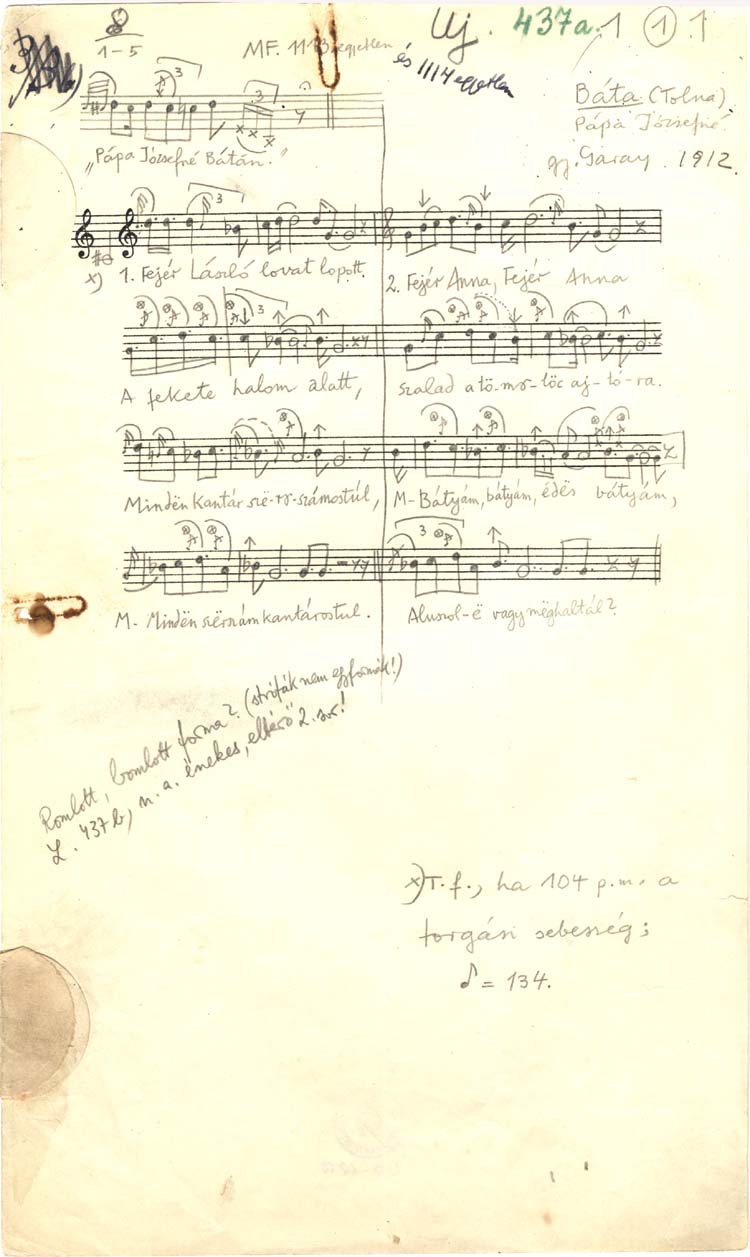 8
1-5
MF. 1113 egyetlen
és 1114 egyetlen
Uj. 437a. 1 1. 1
Báta (Tolna)
Pápa Józsefné
gy. Garay 1912.
"Pápa Józsefné Bátán."
x) 1. Fejér László lovat lopott. 2. Fejér Anna, Fejér Anna
A fekete halom alatt, szalad a tö-mr-löc aj-tó-ra.
Mindën kantár szë-rr-számostúl, M-Bátyám, bátyám, édës bátyám,
M- Mindën szërszám kantárostul. Aluszol-ë vagy mëghaltál?
Romlott, bomlott forma? (strófák nem egyformák!)
L. 437b, u. a. énekes, eltérő 2. sor!
x) T. f., ha 104 p.m. a
forgási sebesség;
♪ = 134.